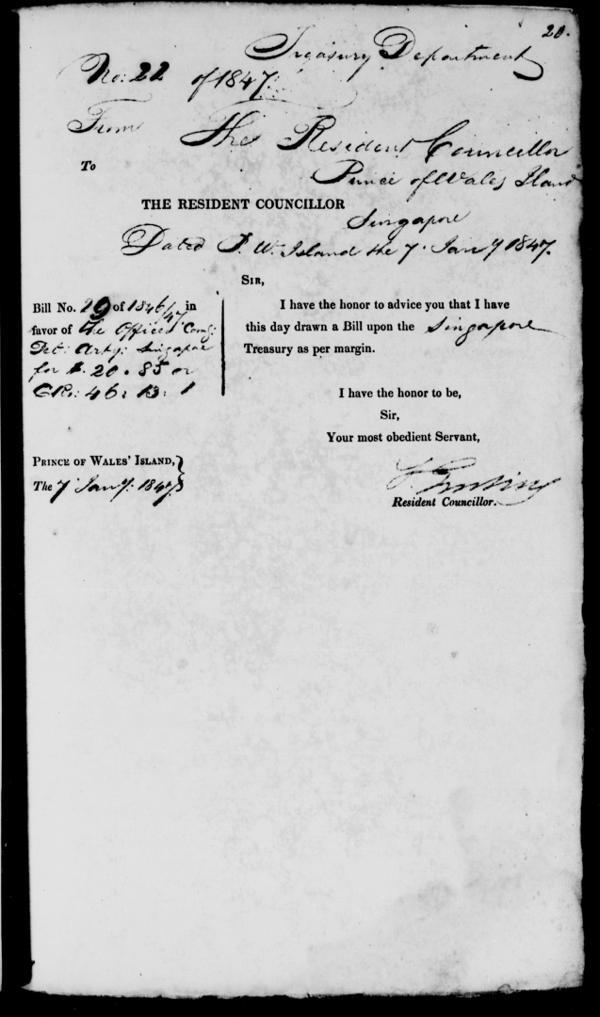 20.
Treasury Department
No: 22 of 1847.
From The Resident Councillor
Prince of Wales Island
To
THE RESIDENT COUNCILLOR
Singapore
Dated P. W. Island the 7 Jany 1847.
SIR,
Bill No. 29 of 1846/47 in
favor of the Officer Comg:
Det: Arty: Singapore
for $. 20.85 or
CRs: 46: 13: 1
I have the honor to advice you that I have
this day drawn a Bill upon the Singapore
Treasury as per margin.
I have the honor to be,
Sir,
Your most obedient Servant,
PRINCE OF WALES' ISLAND,
The 7 Jany: 1847.
Resident Councillor.